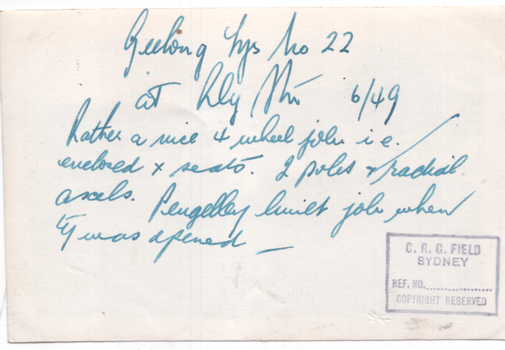 Geelong tys No 22
at Rly Stn 6/49
Rather a nice 4 wheel job i.e.
enclosed x seats. 2 poles & radial
axels. Pengelley built job when
ty was opened —
C. R. G. FIELD
SYDNEY
REF. NO.
COPYRIGHT RESERVED